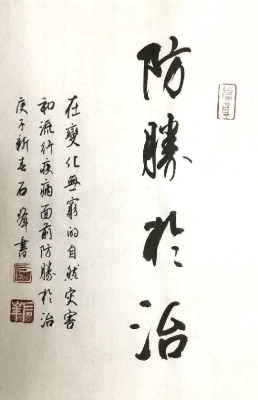 防勝於治
在變化無窮的自然灾害
和流行疾病面前防勝於治
庚子新春石輝書